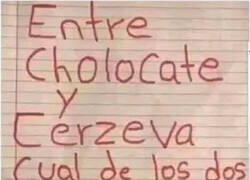 Entre
Cholocate
y
Cerzeva
cual de los dos